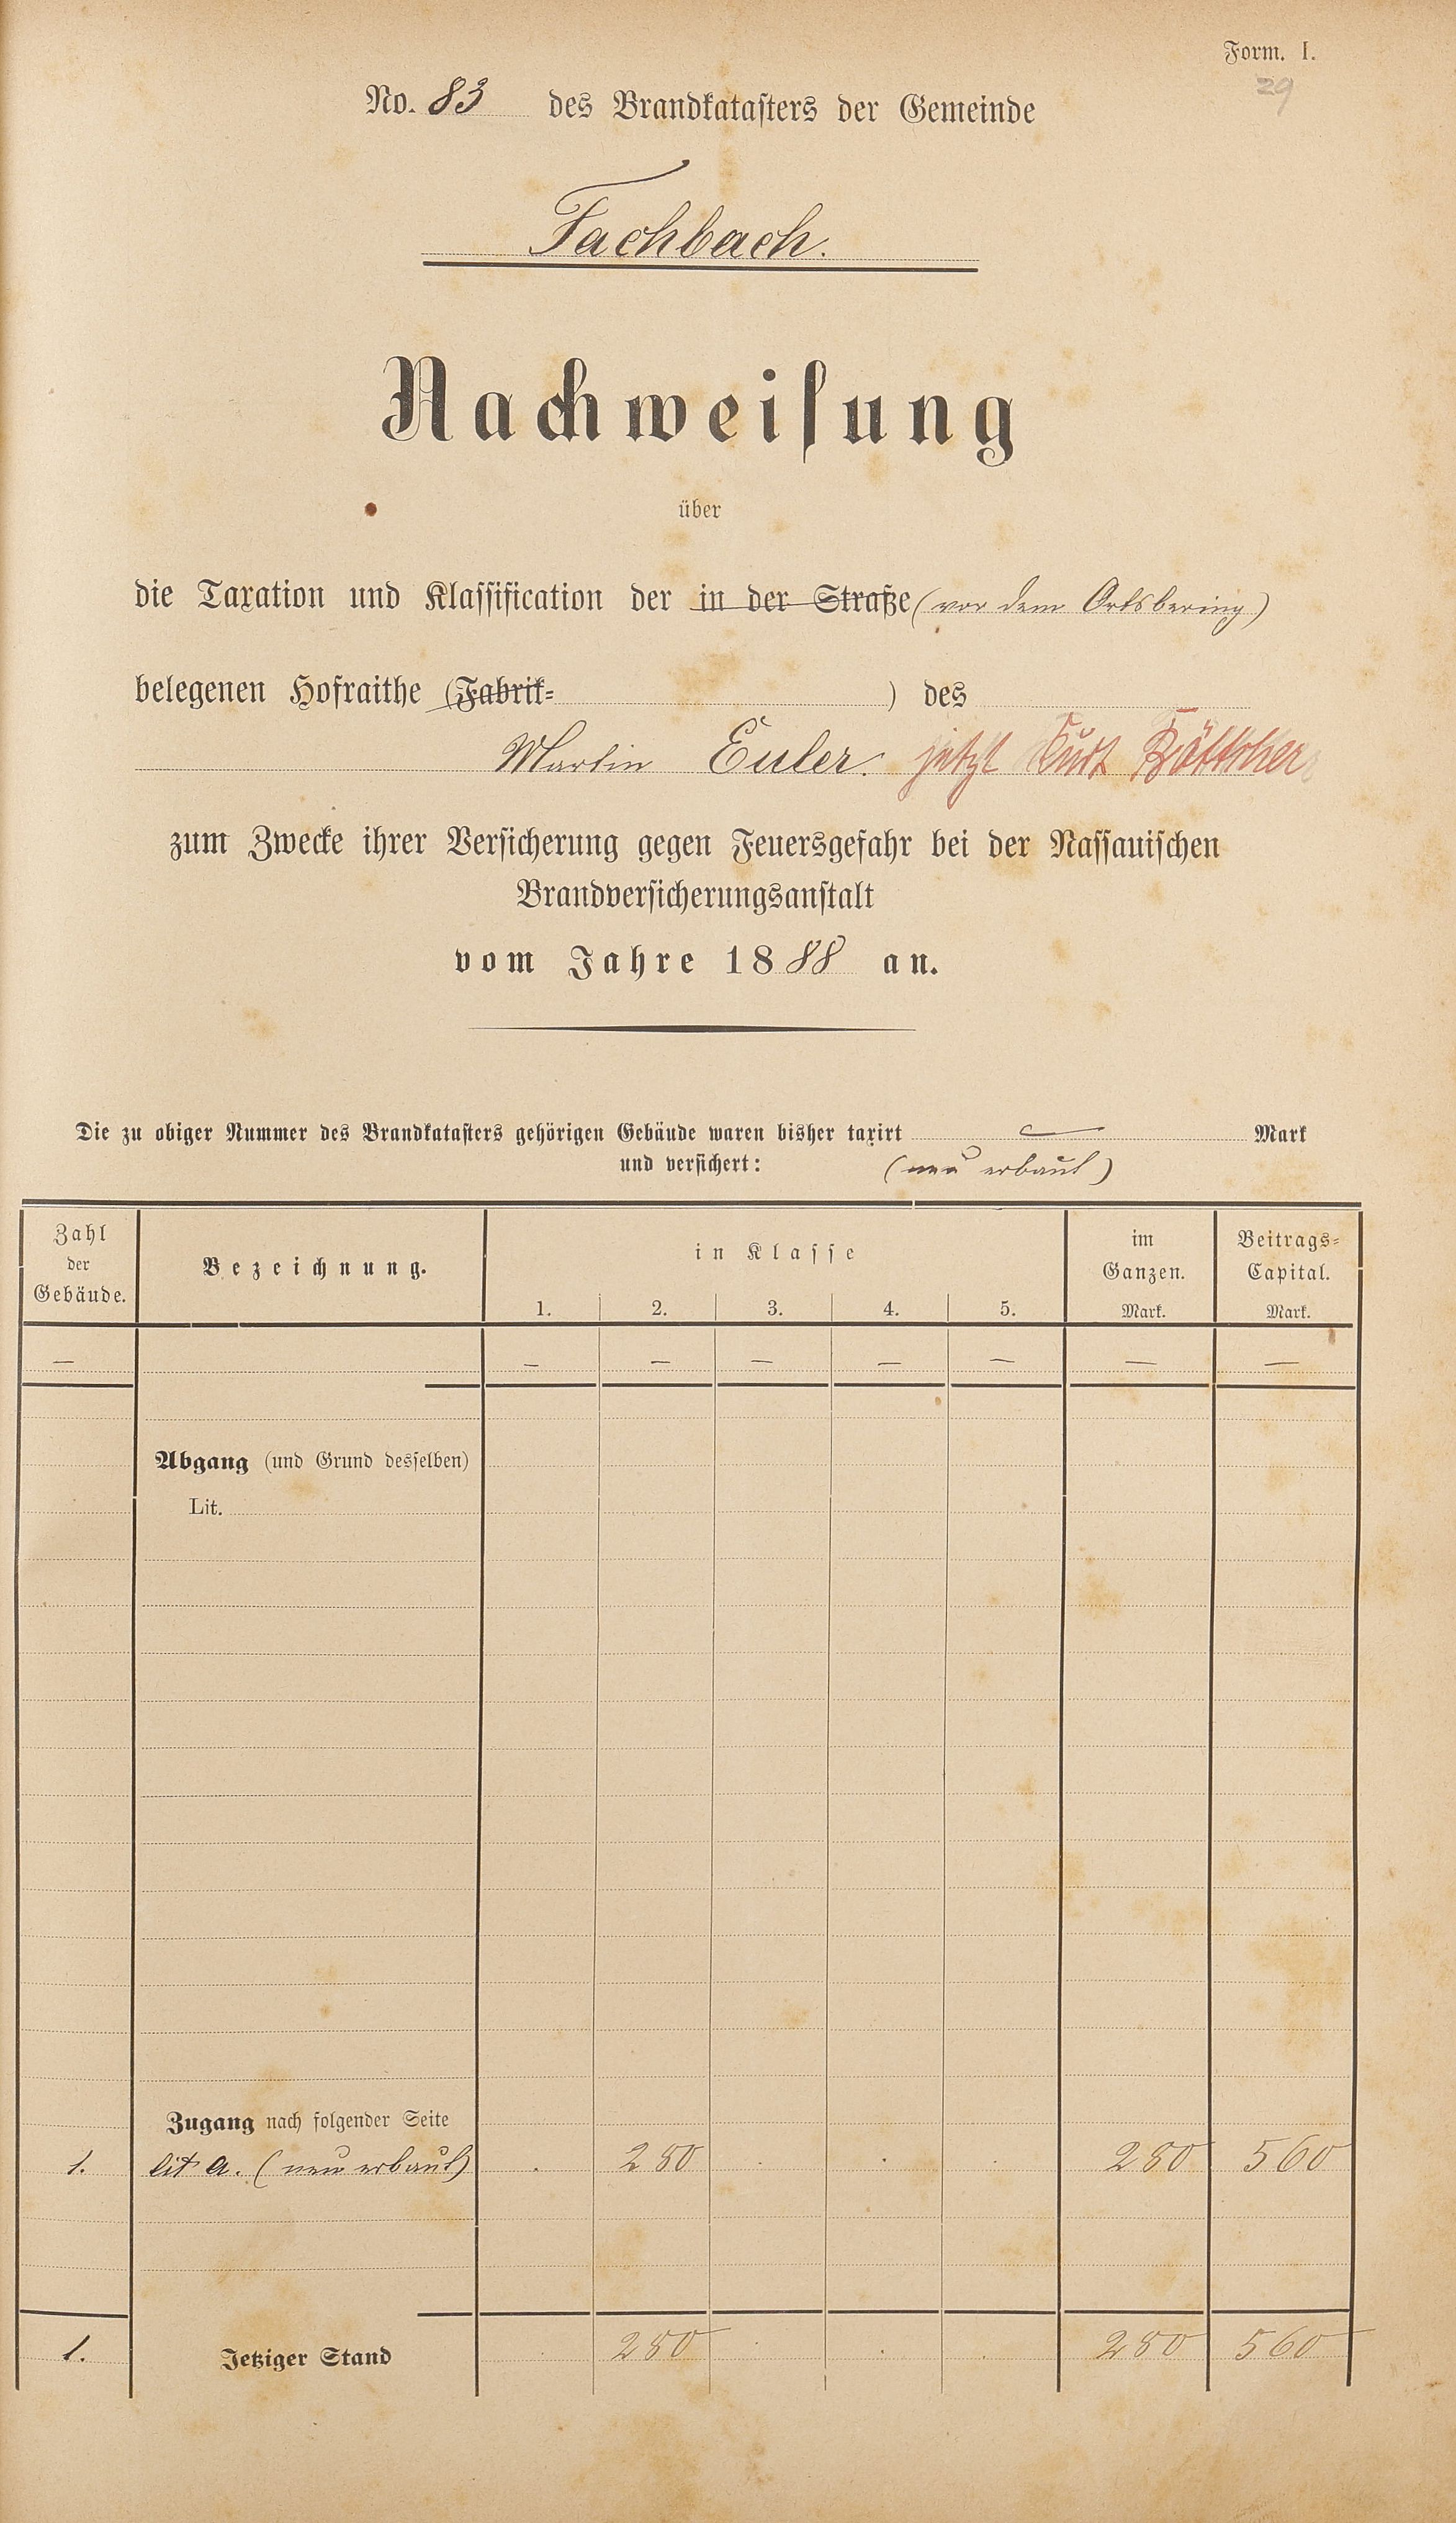 Form. I.
29
No. 83 des Brandkatasters der Gemeinde
Fachbach.
Nachweisung
über
die Taxation und Klassification der in der Straße (vor dem Ortsbering)
belegenen Hofraithe (Fabrik- ) des
Martin Euler. jetzt Kurt Böttcher
zum Zwecke ihrer Versicherung gegen Feuersgefahr bei der Nassauischen
Brandversicherungsanstalt
vom Jahre 1888 an.
Die zu obiger Nummer des Brandkatasters gehörigen Gebäude waren bisher taxirt — Mark
und versichert: (neu erbaut)
Zahl der Gebäude. Bezeichnung. in Klasse im Ganzen. Beitrags-Capital.
1. 2. 3. 4. 5. Mark. Mark.
— — — — — — — —
Abgang (und Grund desselben)
Lit.
Zugang nach folgender Seite
1. lit a. (neu erbaut) . 280 . . . 280 560
1. Jetziger Stand . 280 . . . 280 560